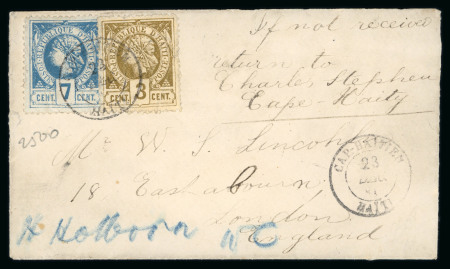 If not received
return to
Charles Stephen
Cape-Haity
REPUBLIQUE D'HAITI
CENT. 7 CENT.
CENT. 3 CENT.
HAITI
2500
Mr W. S. Lincoln
18 Eastabourn
London
England
CAP-HAITIEN
23
HAITI
Holborn WC